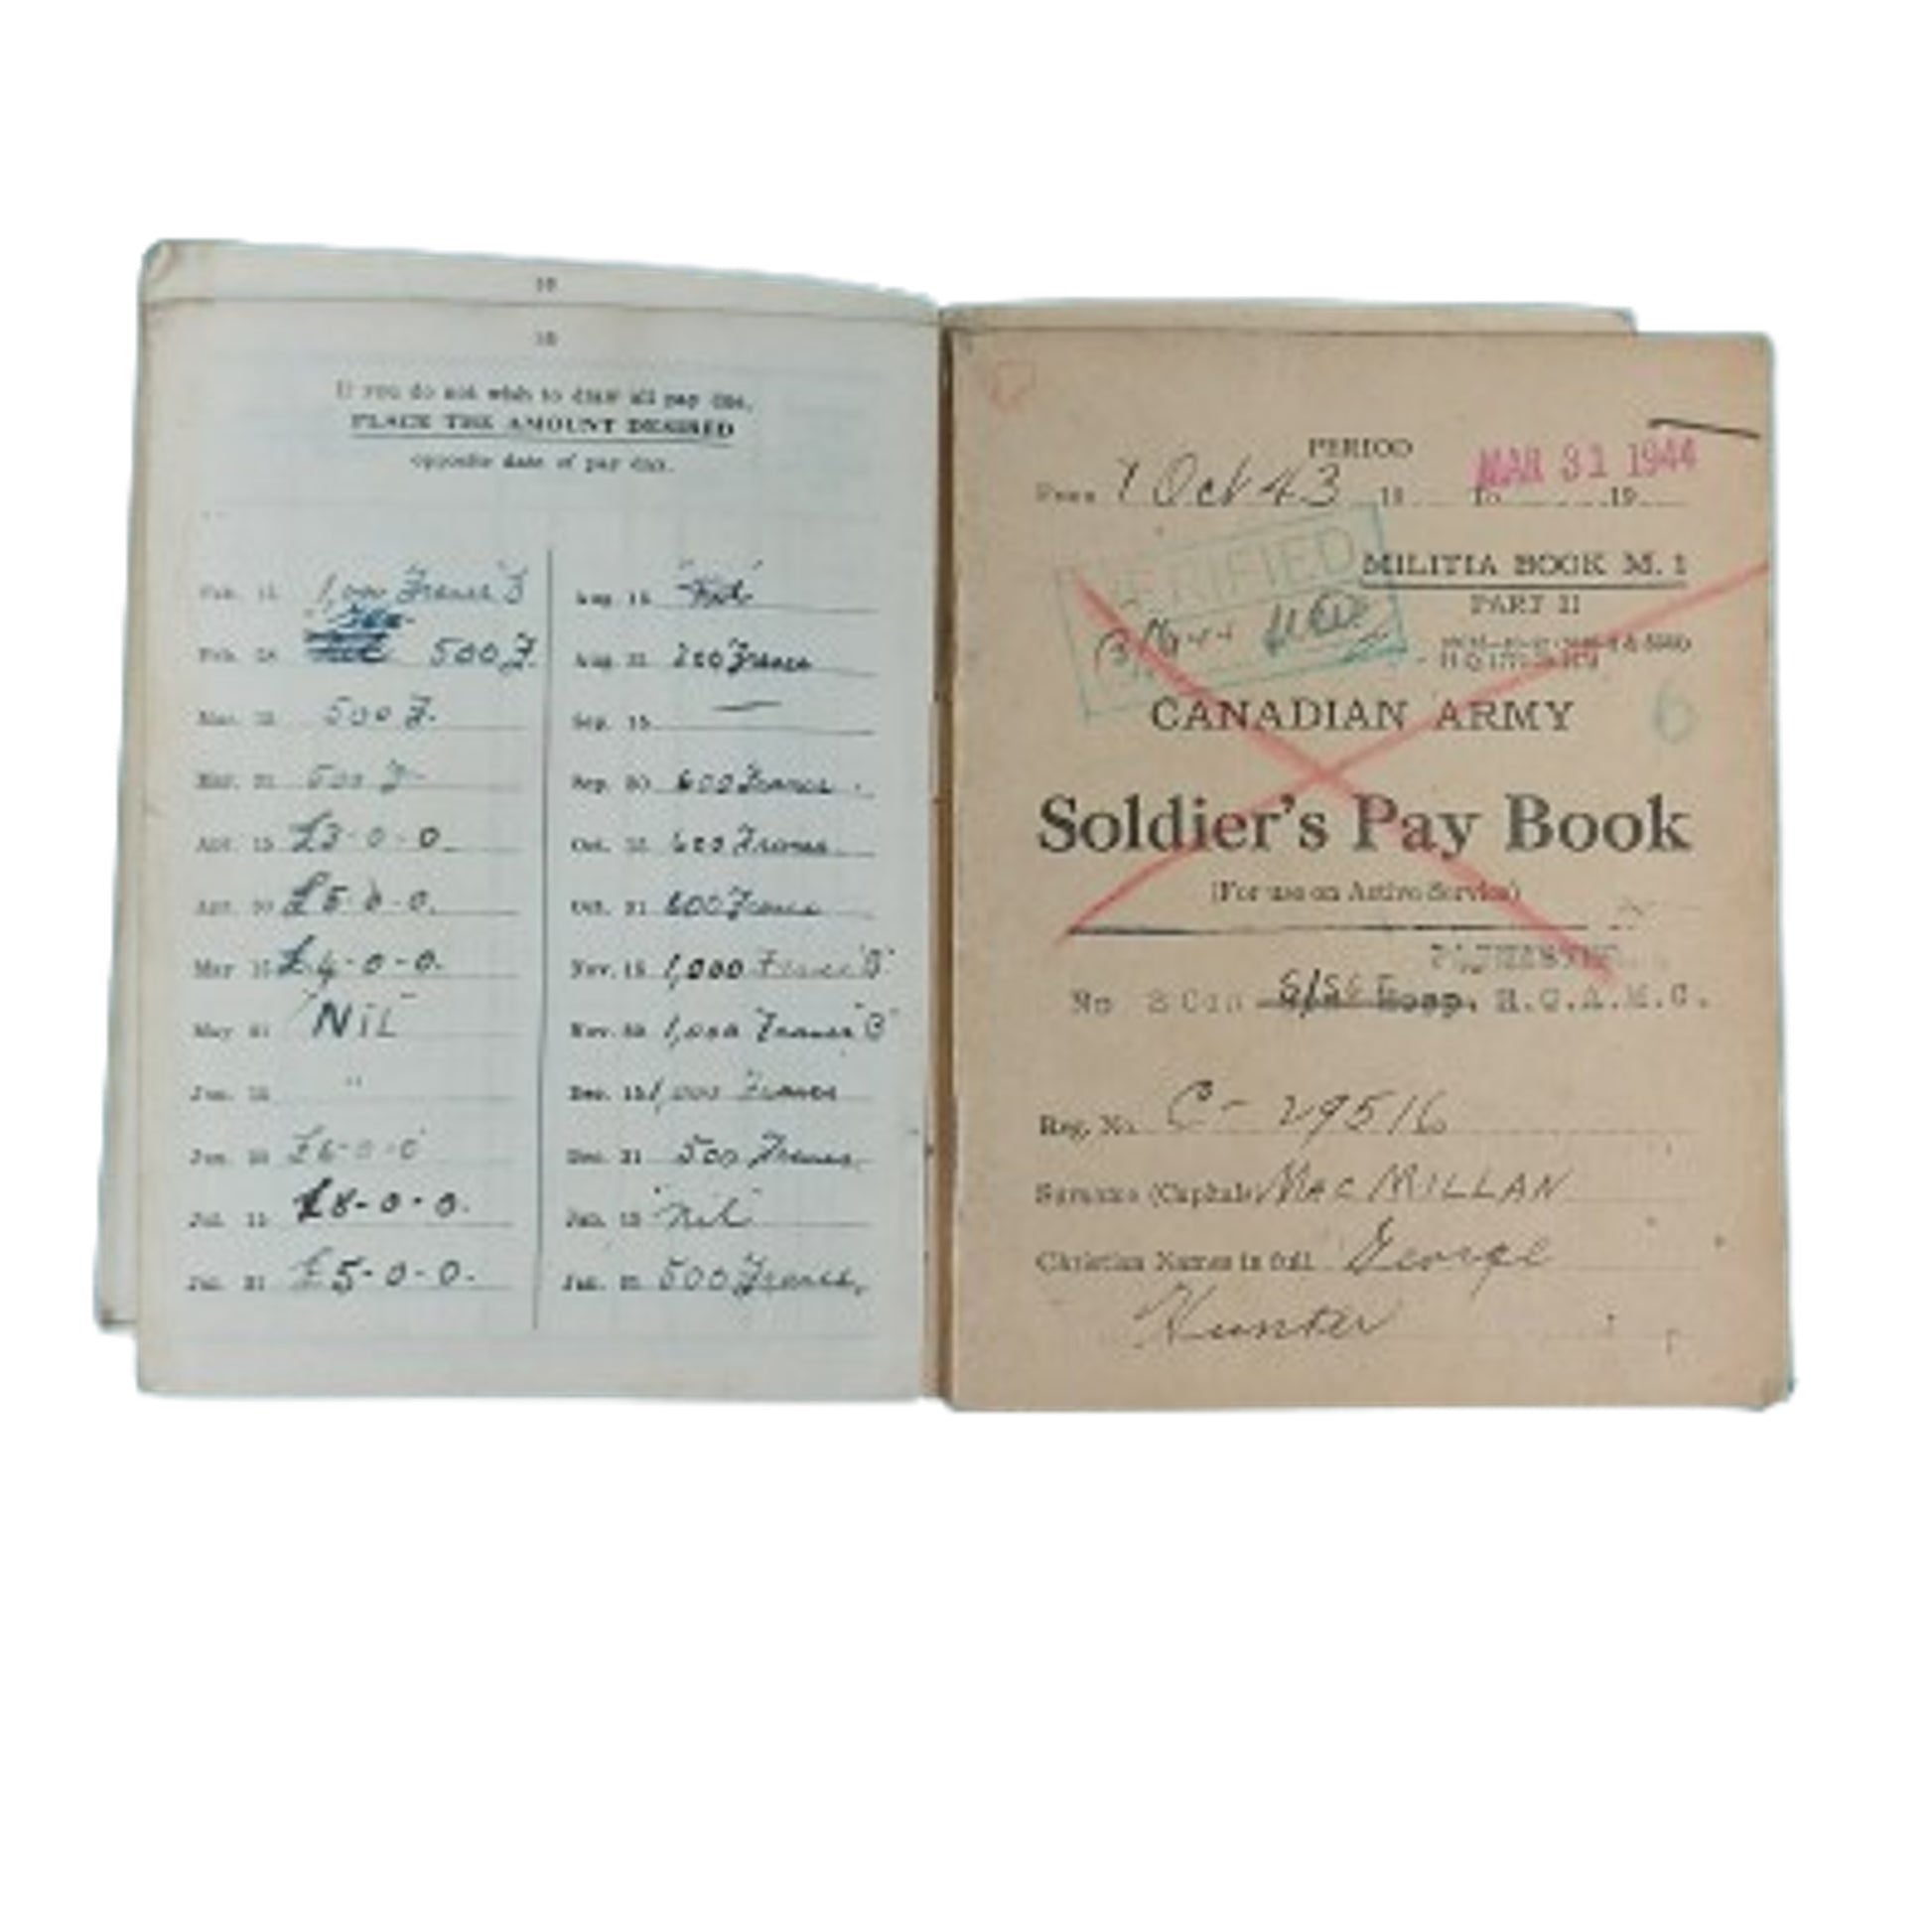 18
18
If you do not wish to draw all pay due,
PLACE THE AMOUNT DESIRED
opposite date of pay day.
Feb. 15 1,000 Francs B
Feb. 28 500 F.
Mar. 15 500 F.
Mar. 31 500 F-
Apr. 15 £3-0-0.
Apr. 30 £5-0-0.
May 15 £4-0-0.
May 31 "NiL"
Jun. 15 "
Jun. 30 £6-0-0
Jul. 15 £8-0-0.
Jul. 31 £5-0-0.
Aug. 15 "Nil"
Aug. 31 200 Francs
Sep. 15 —
Sep. 30 600 Francs.
Oct. 15 600 Francs.
Oct. 31 600 Francs
Nov. 15 1,000 Francs "B"
Nov. 30 1,000 Francs "B"
Dec. 15 1,000 Francs
Dec. 31 500 Francs.
Jan. 15 "nil"
Jan. 31 500 Francs.
PERIOD
From 1 Oct 43 19 To MAR 31 1944 19
VERIFIED
MILITIA BOOK M. 1
PART II
CANADIAN ARMY
6
Soldier's Pay Book
(For use on Active Service)
No Hosp. R.C.A.M.C.
Reg. No. C-29516
Surname (Capitals) MACMILLAN
Christian Names in full George
Hunter